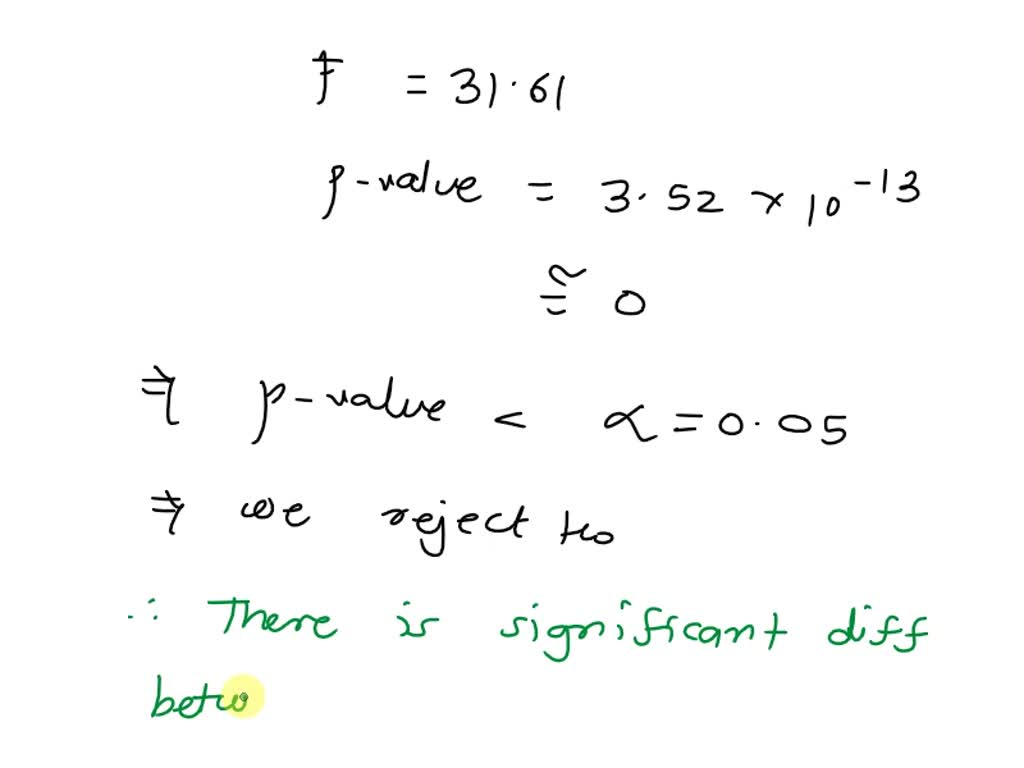 F = 31.61
p-value = 3.52 × 10^-13
≅ 0
⇒ p-value < α = 0.05
⇒ we reject H₀
∴ There is significant diff
betw